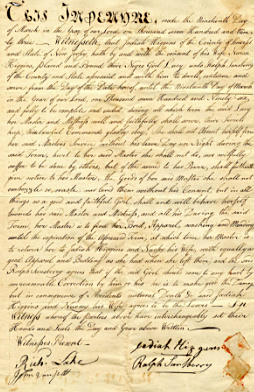 THIS INDENTURE, made the Nineteenth Day
of March in the Year of our Lord one thousand seven Hundred and Ninety
three Witnesseth, that Judiah Higgins of the County of
and State of New Jersey, hath by and with the consent of his Wife
Higgins, placed and Bound their Negro Girl Lucy, unto Ralph Sansberry
of the County and State aforesaid and with him to dwell, and
serve from the Day of the Date hereof, until the Nineteenth Day of March
in the Year of our Lord, one thousand seven Hundred and Ninety
and fully to be compleat and ended during all which term the said Lucy
her Master and Mistress well and faithfully shall serve, their Secrets
keep, their lawful Commands gladly obey. She shall not absent herself from
her said Masters Service without his leave Day or Night during the
said Term, hurt to her said Master she shall not do, nor wilfully
suffer to be done by others, but if the same to her Power, shall forthwith
give notice to her Master, the Goods of her said Master she shall not
embezzle or waste, nor lend them without his Consent, but in all
things as a good and faithful Girl shall and will behave herself
towards her said Master and Mistress, and all his During the said
Term, her Master is to find her Food, Apparel, washing and
until the expiration of the aforesaid Term, at which time her Master is
to return her to Judiah Higgins and his Wife, with equally as
good Apparel and Bedding as she had when she left them and the said
Ralph Sansberry agrees that if the said Girl should come to any hurt by
unreasonable Correction by him or his he is to make good the Damage
but in consequence of Accidents natural Death &c said Judiah
Higgins and his Wife to be the Losers
WITNESS whereof the parties above have interchangeably set their
Hands and Seals the Day and Year above Written
Witnesses Present
Judiah Higgins
Ralph Sansberry
Rich Lake